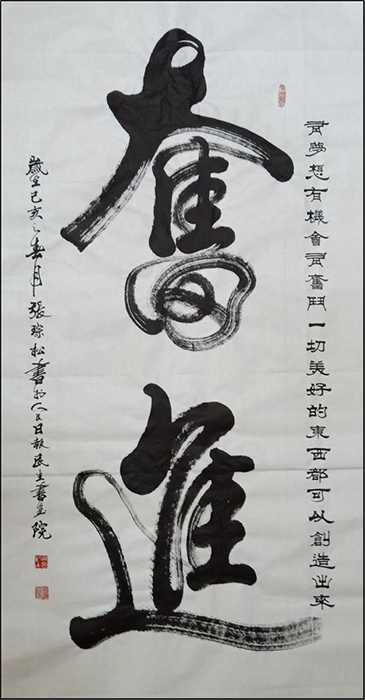 有夢想有機會有奮鬥一切美好的東西都可以創造出來
奮進
歲在己亥之春月張琮松書於人民日報民生書畫院